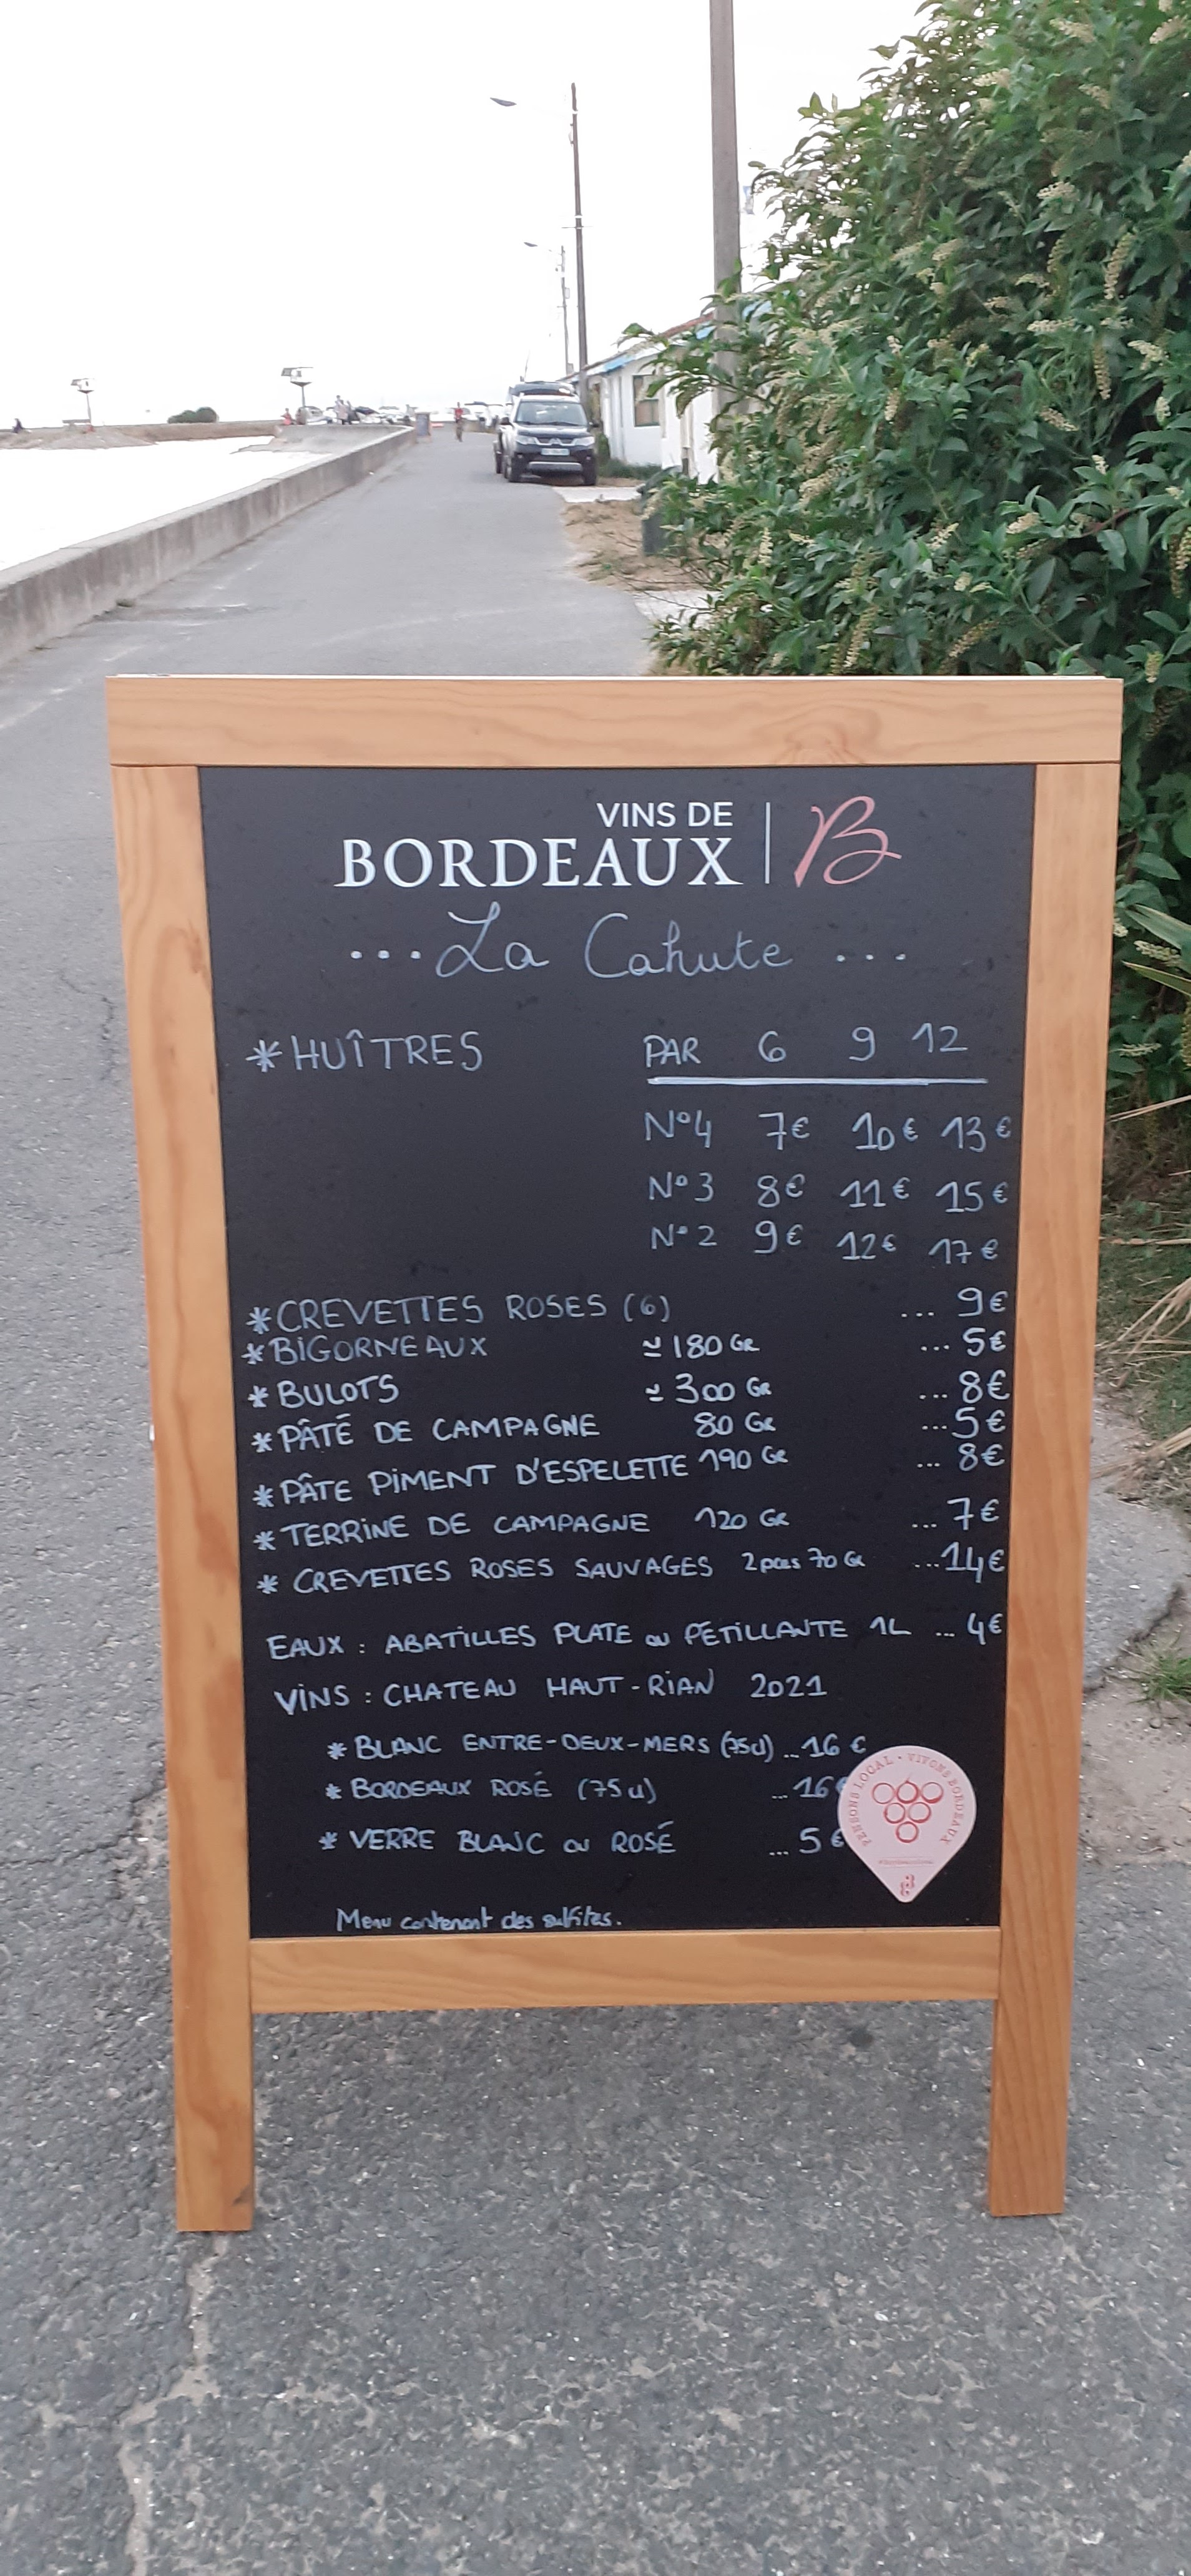 VINS DE
BORDEAUX | B
...La Cahute ...
*HUÎTRES PAR 6 9 12
N°4 7€ 10€ 13€
N°3 8€ 11€ 15€
N°2 9€ 12€ 17€
*CREVETTES ROSES (6) ... 9€
*BIGORNEAUX ≃ 180 Gr ... 5€
*BULOTS ≃ 300 Gr ... 8€
*PÂTÉ DE CAMPAGNE 80 Gr ...5€
*PÂTE PIMENT D'ESPELETTE 190 Gr ... 8€
*TERRINE DE CAMPAGNE 120 Gr ... 7€
* CREVETTES ROSES SAUVAGES 2 pces 70 Gr ...14€
EAUX : ABATILLES PLATE ou PETILLANTE 1L ... 4€
VINS : CHATEAU HAUT-RIAN 2021
* BLANC ENTRE-DEUX-MERS (75cl) ...16 €
* BORDEAUX ROSÉ (75cl) ...16€
* VERRE BLANC ou ROSÉ ... 5 €
PENSONS LOCAL • VIVONS BORDEAUX
Menu contenant des sulfites.